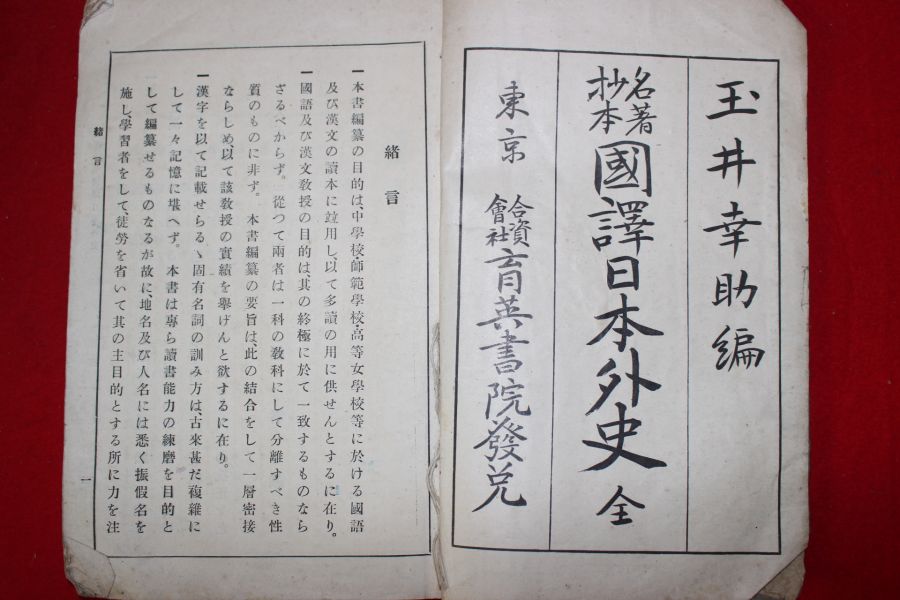 玉井幸助編
名著
抄本
國譯日本外史 全
東京
合資
會社
育英書院發兌
緒言
一本書編纂の目的は、中學校、師範學校、高等女學校等に於ける國語
及び漢文の讀本に竝用し、以て多讀の用に供せんとするに在り。
一國語及び漢文敎授の目的は、其の終極に於て一致するものなら
ざるべからず。從つて兩者は一科の敎科にして分離すべき性
質のものに非ず。本書編纂の要旨は、此の結合をして一層密接
ならしめ、以て該敎授の實績を擧げんと欲するに在り。
一漢字を以て記載せらるゝ固有名詞の訓み方は、古來甚だ複雜に
して一々記憶に堪へず。本書は專ら讀書能力の練磨を目的と
して編纂せるものなるが故に、地名及び人名には悉く振假名を
施し、學習者をして、徒勞を省いて其の主目的とする所に力を注
緒言
一